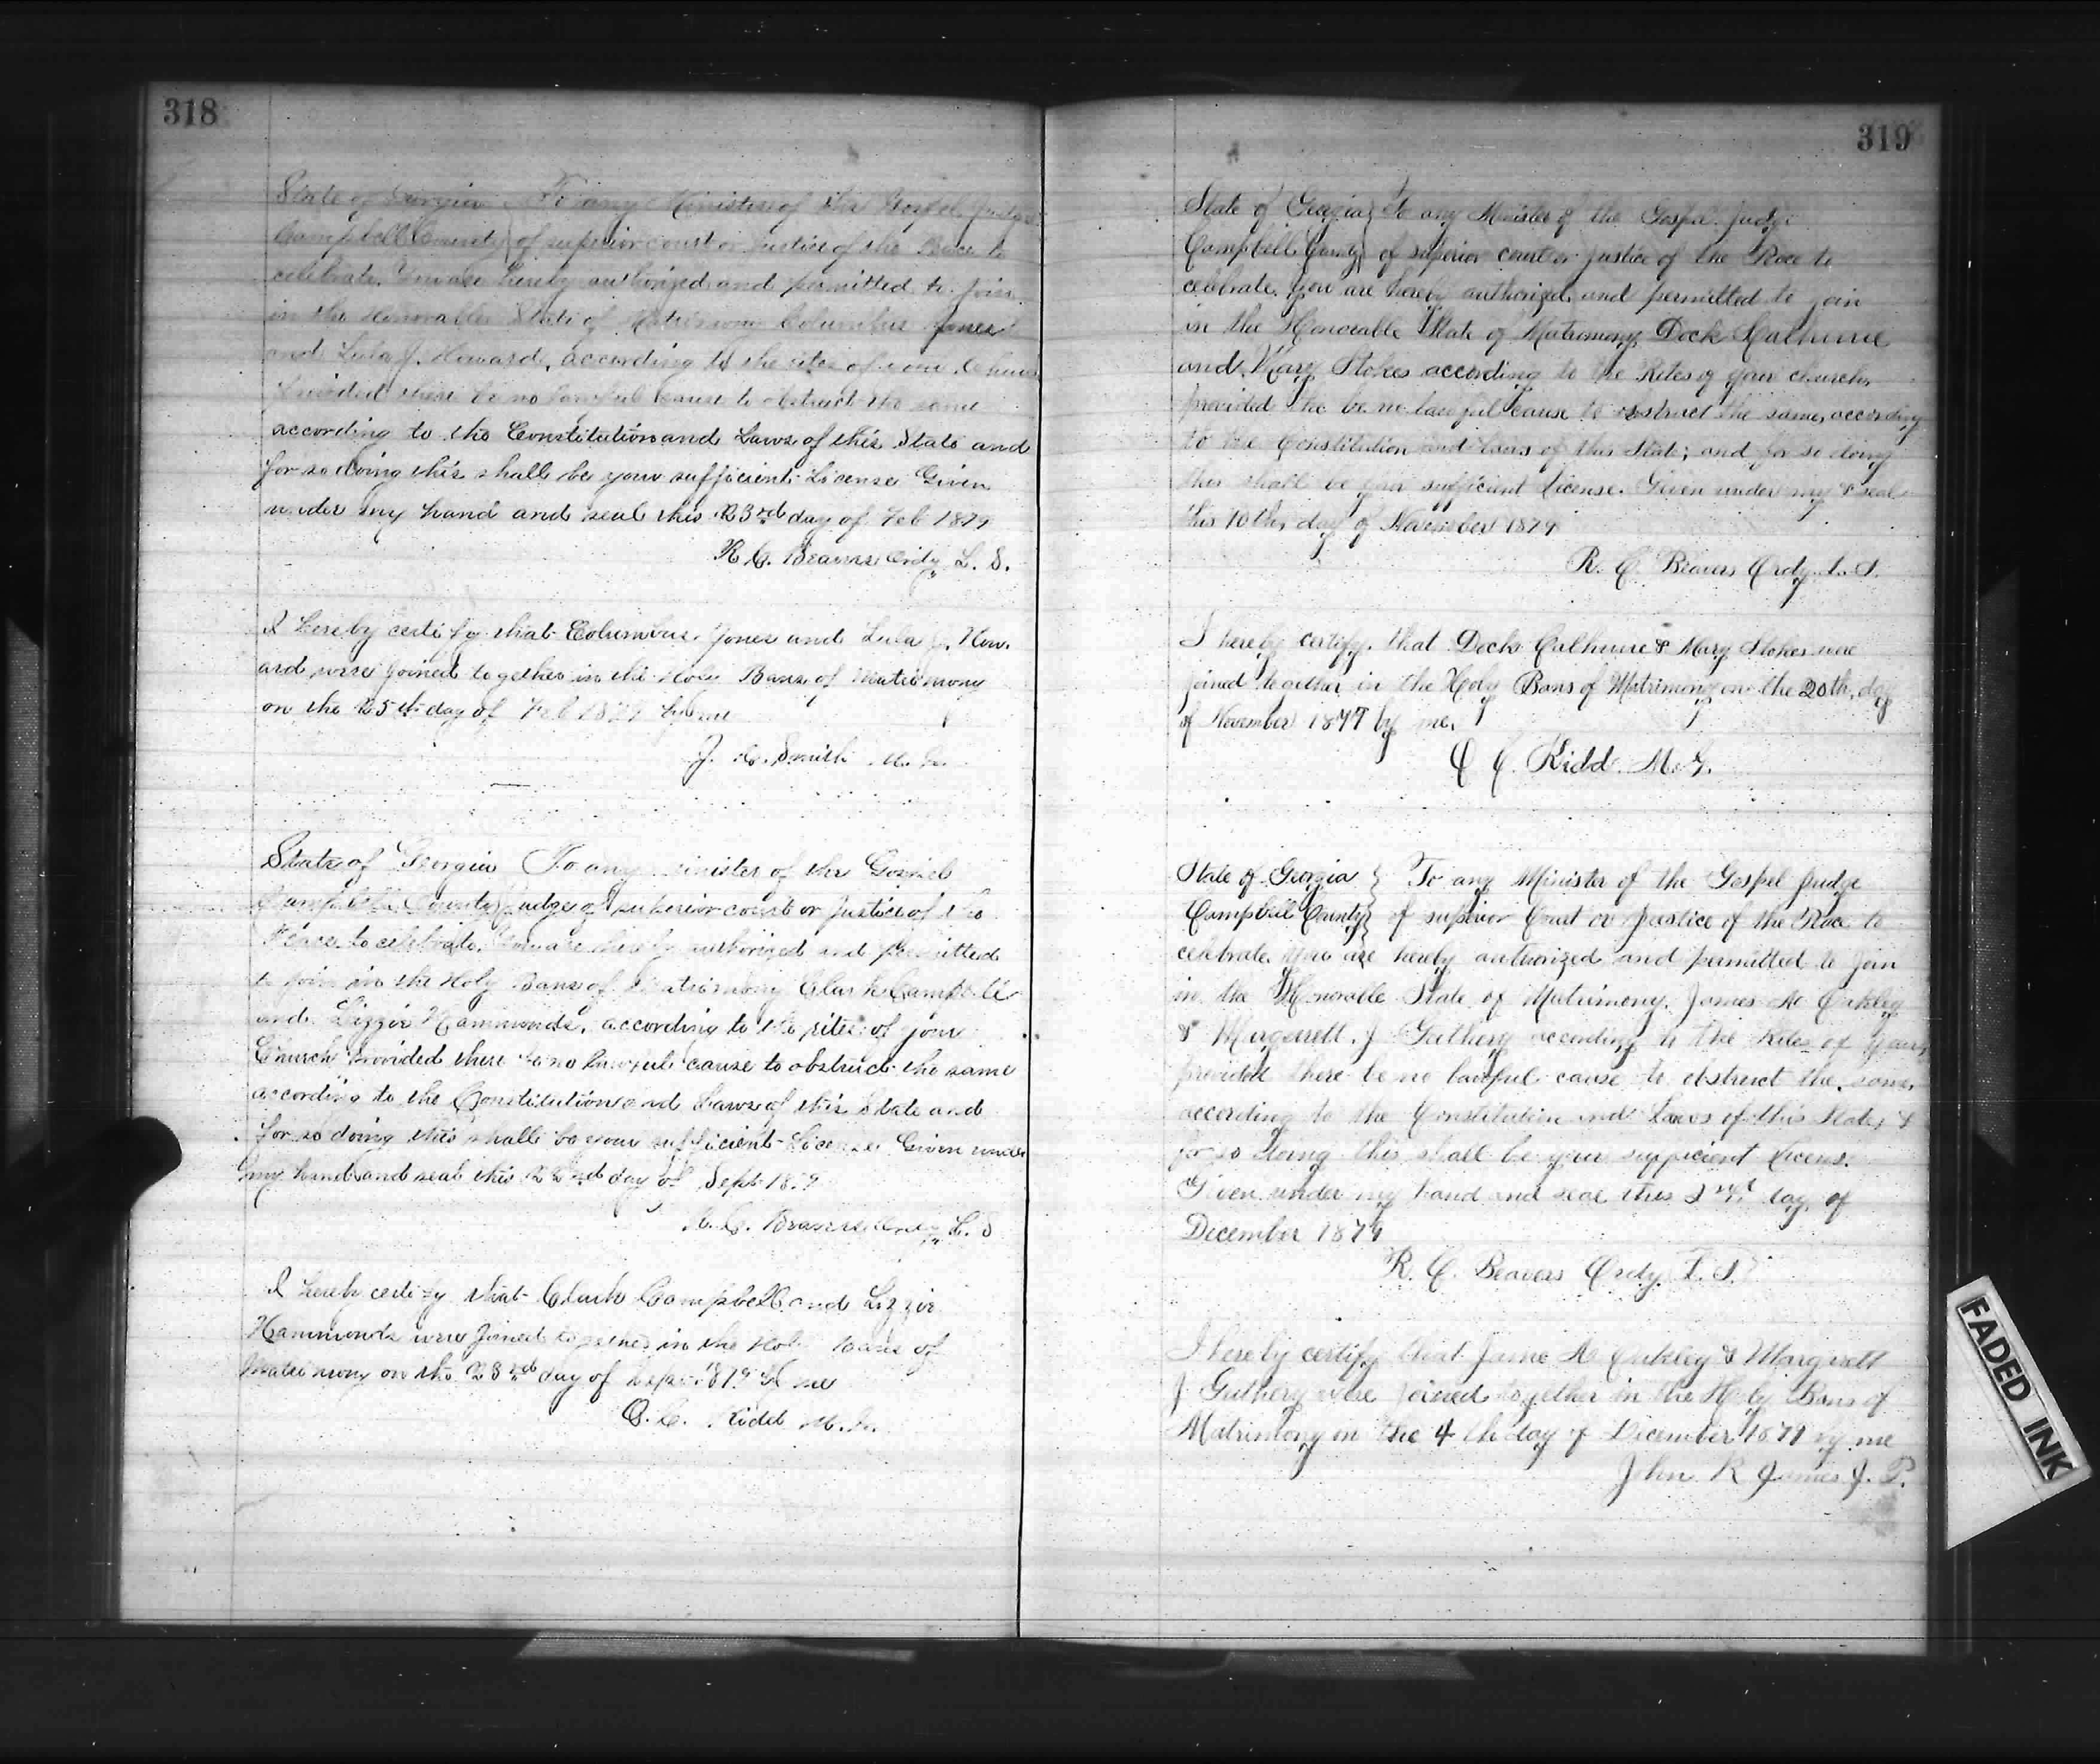 318
State of Georgia To any Minister of the Gospel, Judge
Campbell County of superior court or Justice of the Peace to
celebrate. You are hereby authorized and permitted to join
in the Honorable State of Matrimony Columbus Jones
and Lula J. Howard, according to the rites of your Church
Provided there be no lawful cause to obstruct the same
according to the Constitution and Laws of this State and
for so doing this shall be your sufficient License Given
under my hand and seal this 23rd day of Feb 1879
R. C. Beavers Ordy L. S.
I hereby certify that Columbus Jones and Lula J. How-
ard were joined together in the Holy Bans of Matrimony
on the 25th day of Feb 1879 by me
J. C. Smith M. G.
State of Georgia To any Minister of the Gospel
Campbell County Judge of superior court or Justice of the
Peace to celebrate. You are hereby authorized and permitted
to join in the Holy Bans of Matrimony Clark Campbell
and Lizzie Hammonds, according to the rites of your
Church Provided there be no lawful cause to obstruct the same
according to the Constitution and Laws of this State and
for so doing this shall be your sufficient License Given under
my hand and seal this 22nd day of Sept 1879
R. C. Beavers Ordy L. S
I hereby certify that Clark Campbell and Lizzie
Hammonds were joined together in the Holy Bans of
Matrimony on the 23rd day of Sept 1879 by me
C. C. Kidd M. G.
319
State of Georgia } To any Minister of the Gospel Judge
Campbell County } of superior court or Justice of the Peace to
celebrate. You are hereby authorized and permitted to join
in the Honorable State of Matrimony, Dock Calhune
and Mary Stokes according to the Rites of your church,
provided the be no lawful cause to obstruct the same, according
to the Constitution and laws of this State; and for so doing
this shall be your sufficient License. Given under my & seal
this 10th, day of November 1879
R. C. Beavers Ordy L. S.
I hereby certify, that Dock Calhune & Mary Stokes were
joined together in the Holy Bans of Matrimony on the 20th, day
of November 1879 by me,
C C. Kidd. M. G.
State of Georgia } To any Minister of the Gospel Judge
Campbell County } of superior Court or Justice of the Peace to
celebrate. You are hereby authorized and permitted to join
in the Honorable State of Matrimony. James A Oakley
& Margarett. J Guthery according to the Rites of your,
provided there be no lawful cause to obstruct the same,
according to the Constitution and Laws of this State, &
for so doing this shall be your supficient License.
Given under my hand and seal this day of
December 1879
R. C. Beavers Ordy. L. S.
I hereby certify that Jame A Oakley & Margrett
J. Guthery were joined together in the Holy Bans of
Matrimony on the 4 th day of December 1879 by me
John R James J. P.
FADED INK